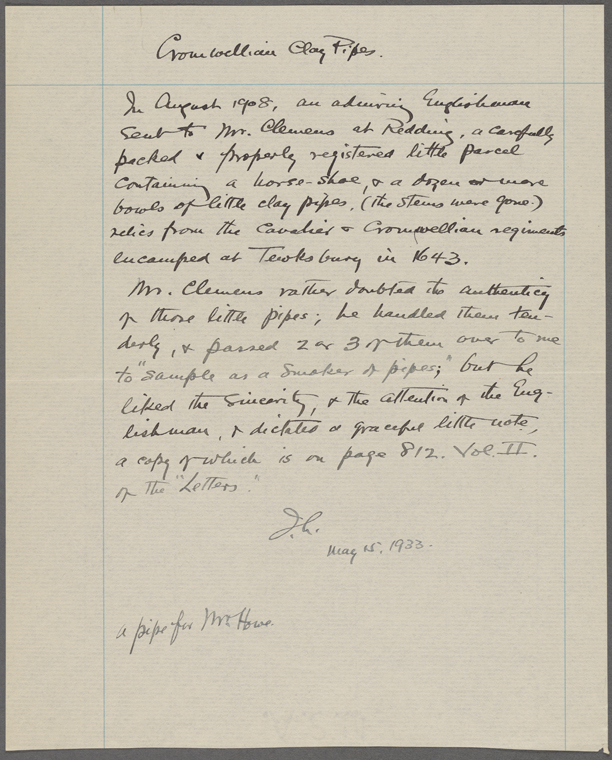 Cromwellian Clay Pipes.
In August 1908, an admiring Englishman
sent to Mr. Clemens at Redding, a carefully
packed & properly registered little parcel
containing a horse-shoe, & a dozen or more
bowls of little clay pipes, (the stems were gone.)
relics from the Cavalier & Cromwellian regiments
encamped at Tewksbury in 1643.
Mr. Clemens rather doubted the authenticy
of those little pipes; he handled them ten-
derly, & passed 2 or 3 of them over to me
to "sample as a smoker of pipes;" but he
liked the sincerity, & the attention of the Eng-
lishman, & dictated a graceful little note,
a copy of which is on page 812. Vol. II.
of the "Letters."
May 15, 1933.
a pipe for Mr. Howe.